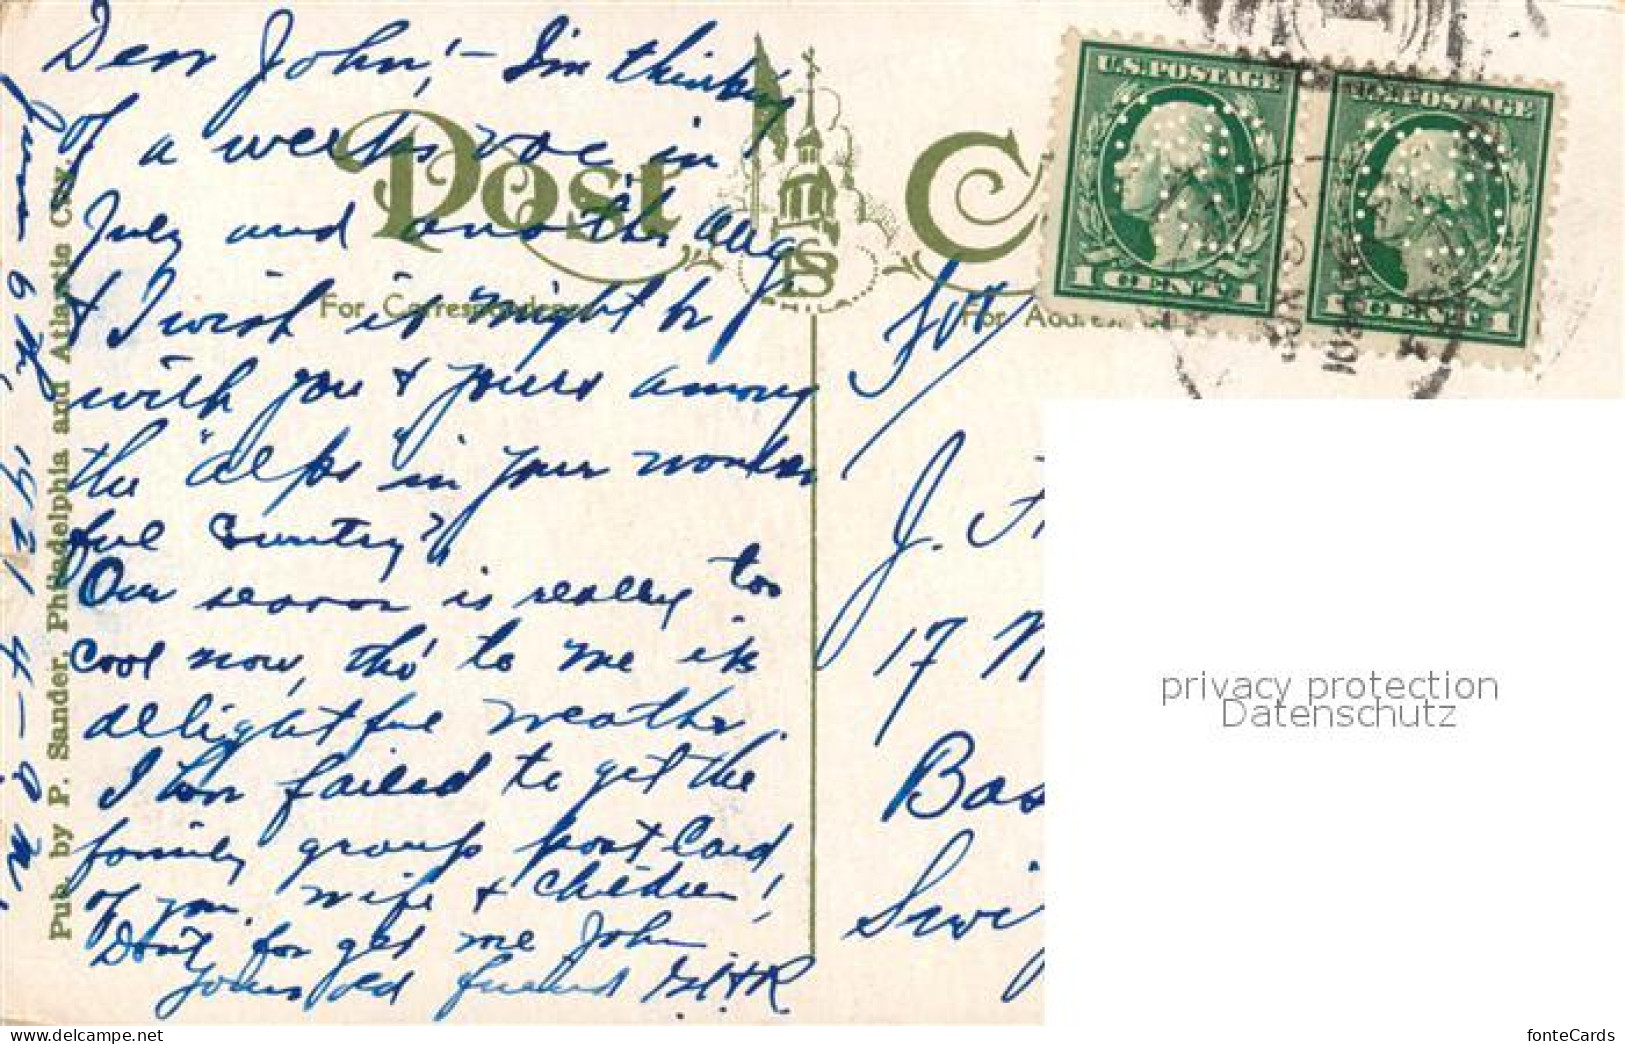 Dear John,! – I'm thinking
of a week's vac in
July and another Aug
& I wish it might be
with you & yours among
the "alps" in your wonder
ful country?
Our season is really too
cool now, tho' to me its
delightful weather.
I have failed to get the
family group post card
of you, wife & children!
Don't for get me John
Your old friend
Post C
For Correspondence
For Address
PHILA
Pub. by P. Sander, Philadelphia and Atlantic City.
June 6th,
1921
U.S. POSTAGE
1 CENT 1
U.S. POSTAGE
1 CENT 1
J.
17
Bas
Swi
privacy protection
Datenschutz
fonteCards